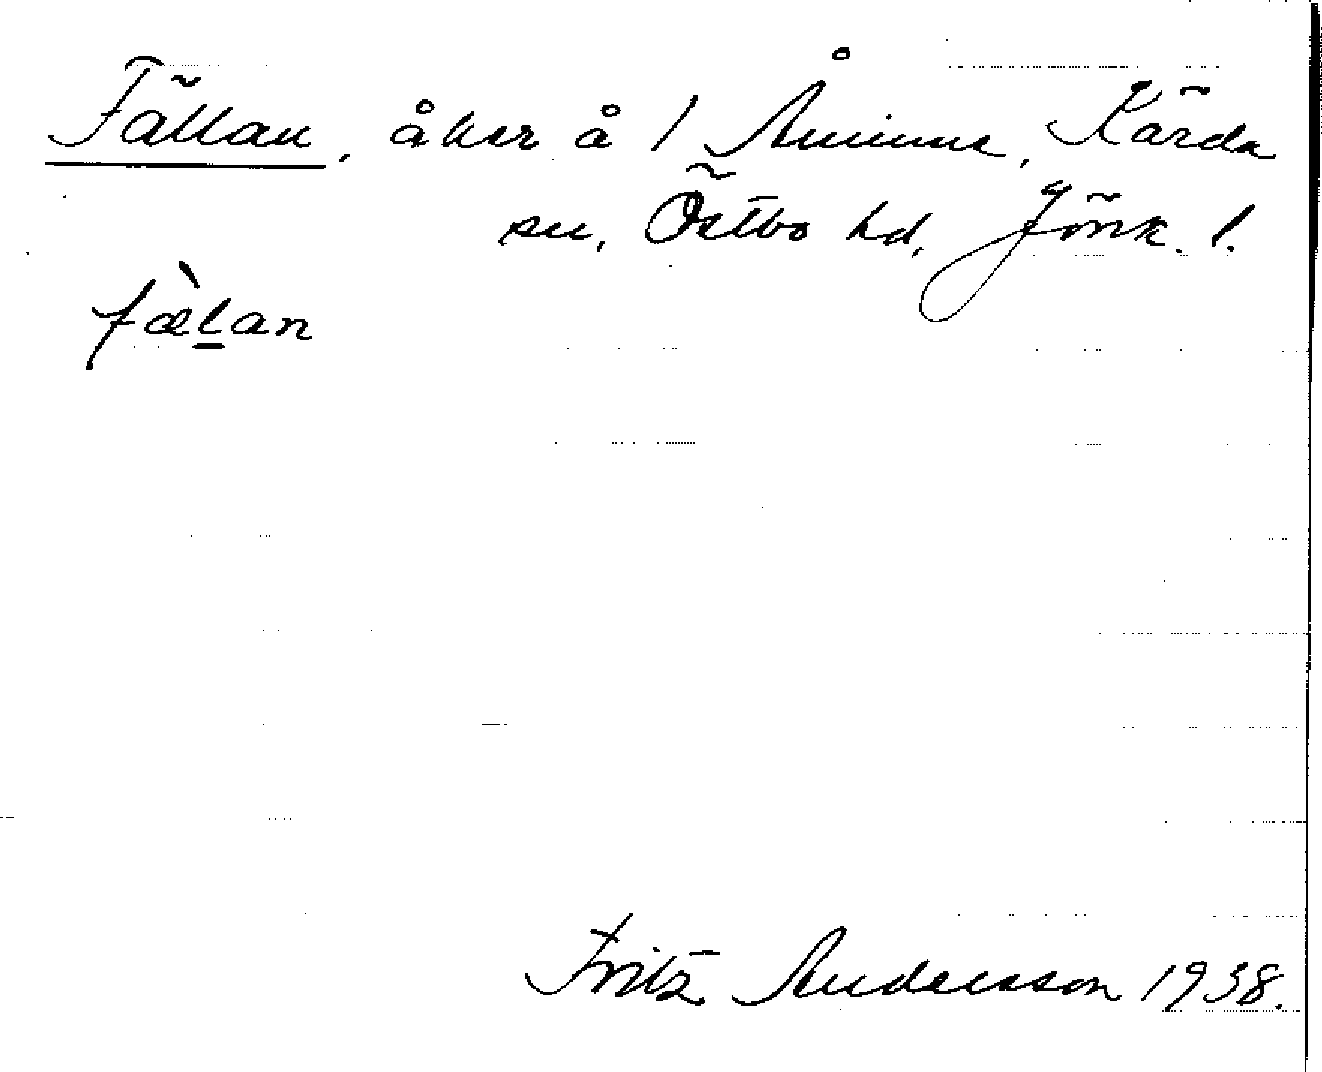 Fällan, åker å 1 Åminne, Kärda
sn, Östbo hd, Jönk. l.
fæ̀l̲an
Fritz Andersson 1938.